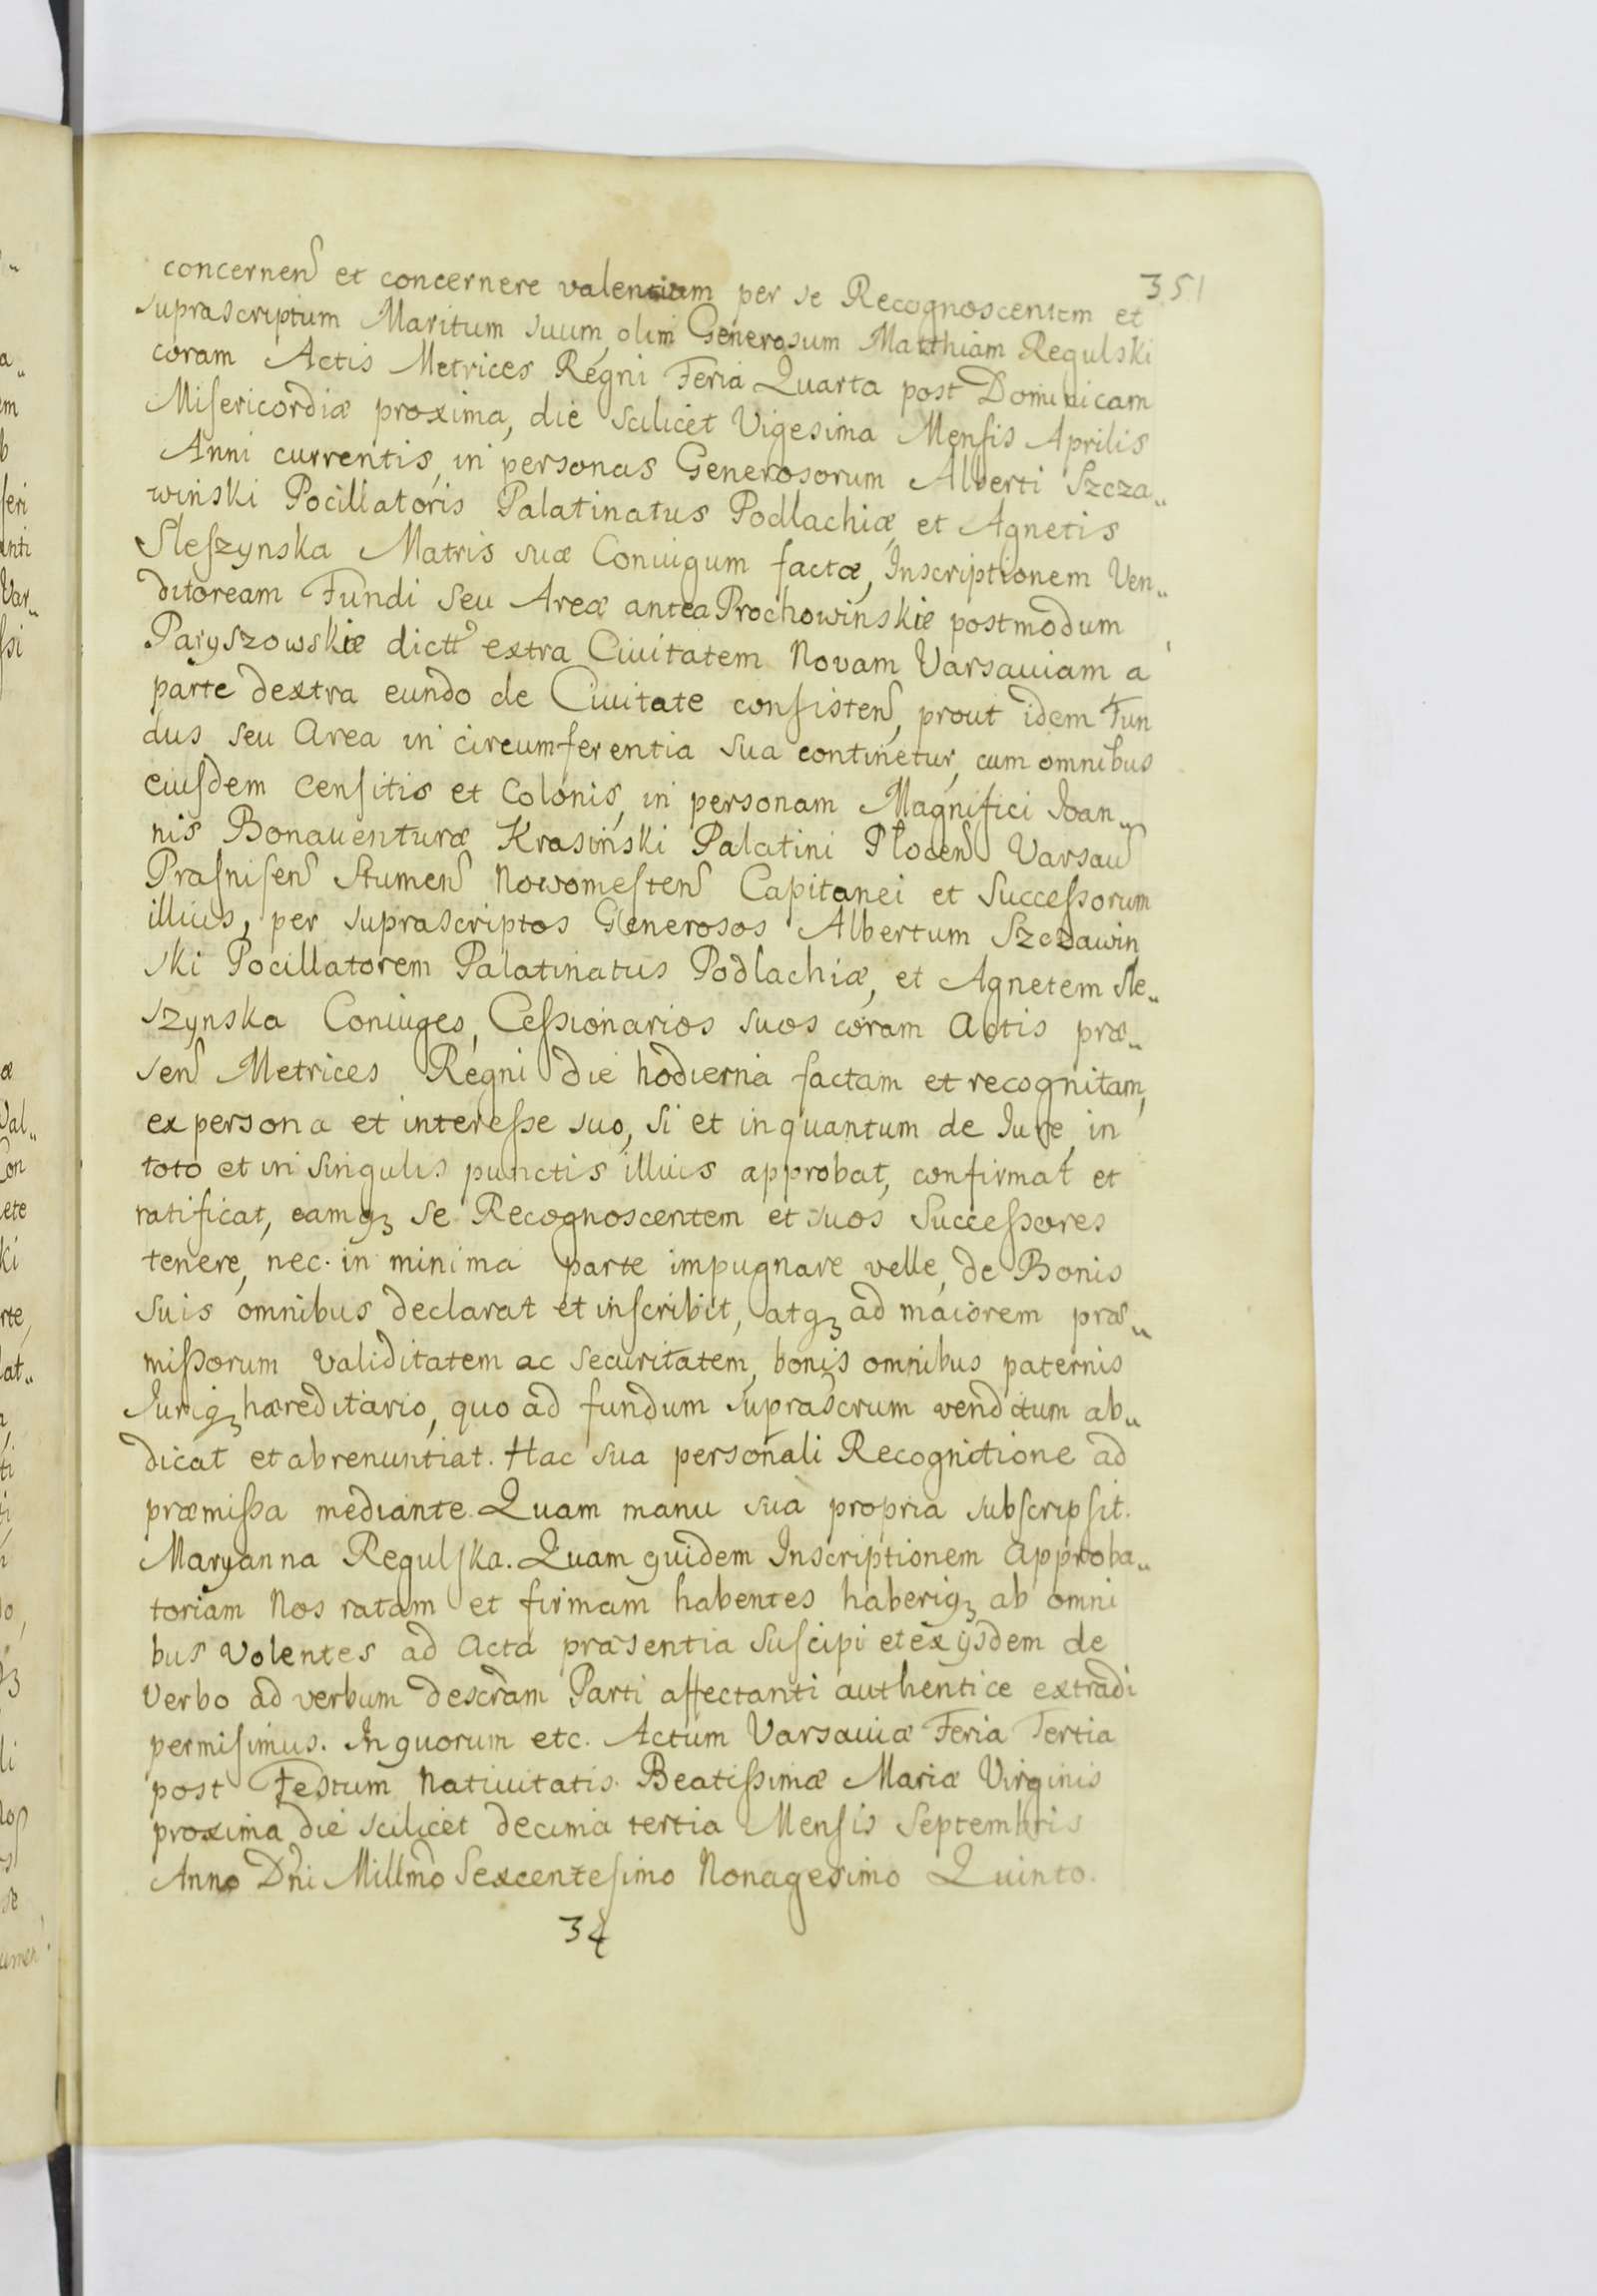 351
concernen et concernere valentium per se Recognoscentem et
suprascriptum Maritum suum, olim Generosum Matthiam Regulski
coram Actis Metrices Regni Feria Quarta post Dominicam
Misericordiæ proxima, die scilicet Vigesima Mensis Aprilis
Anni currentis, in personas Generosorum Alberti Szcza„
winski Pocillatoris Palatinatus Podlachiæ, et Agnetis
Sleszynska Matris suæ Coniugum factæ, Inscriptionem Ven„
ditoream Fundi seu Areæ antea Prochowinskiæ postmodum
Paryszowskiæ dictt extra Ciuitatem Novam Varsauiam a
parte dextra eundo de Ciuitate consisten, prout idem Fun
dus seu Area in circumferentia sua continetur, cum omnibus
eiusdem Censitis et Colonis, in personam Magnifici Ioan„
nis Bonauenturæ Krasinski Palatini Plocen Varsau
Prasnisen Stumen Nowomesten Capitanei et Successorum
illius, per suprascriptos Generosos Albertum Szczawin
ski Pocillatorem Palatinatus Podlachiæ, et Agnetem Sle„
szynska Coniuges, Cessionarios suos coram Actis præ„
sen Metrices Regni die hodierna factam et recognitam,
ex persona et interesse suo, si et inquantum de Iure, in
toto et in singulis punctis illius approbat, confirmat et
ratificat, eamqꝫ se Recognoscentem et suos Successores
tenere, nec in minima parte impugnare velle, de Bonis
suis omnibus declarat et inscribit, atqꝫ ad maiorem præ„
missorum validitatem ac securitatem, bonis omnibus paternis
Iuriqꝫ hæreditario, quo ad fundum suprascrum venditum ab„
dicat et abrenuntiat. Hac sua personali Recognitione ad
præmissa mediante. Quam manu sua propria subscripsit.
Maryanna Regulska. Quam quidem Inscriptionem Approba„
toriam Nos ratam et firmam habentes haberiqꝫ ab omni
bus Volentes ad Acta præsentia suscipi et ex ijsdem de
Verbo ad verbum descram Parti affectanti authentice extradi
permisimus. In quorum etc. Actum Varsauiæ Feria Tertia
post Festum Natiuitatis Beatissimæ Mariæ Virginis
proxima die scilicet decima tertia Mensis Septembris
Anno Dni Millmo Sexcentesimo Nonagesimo Quinto.
34